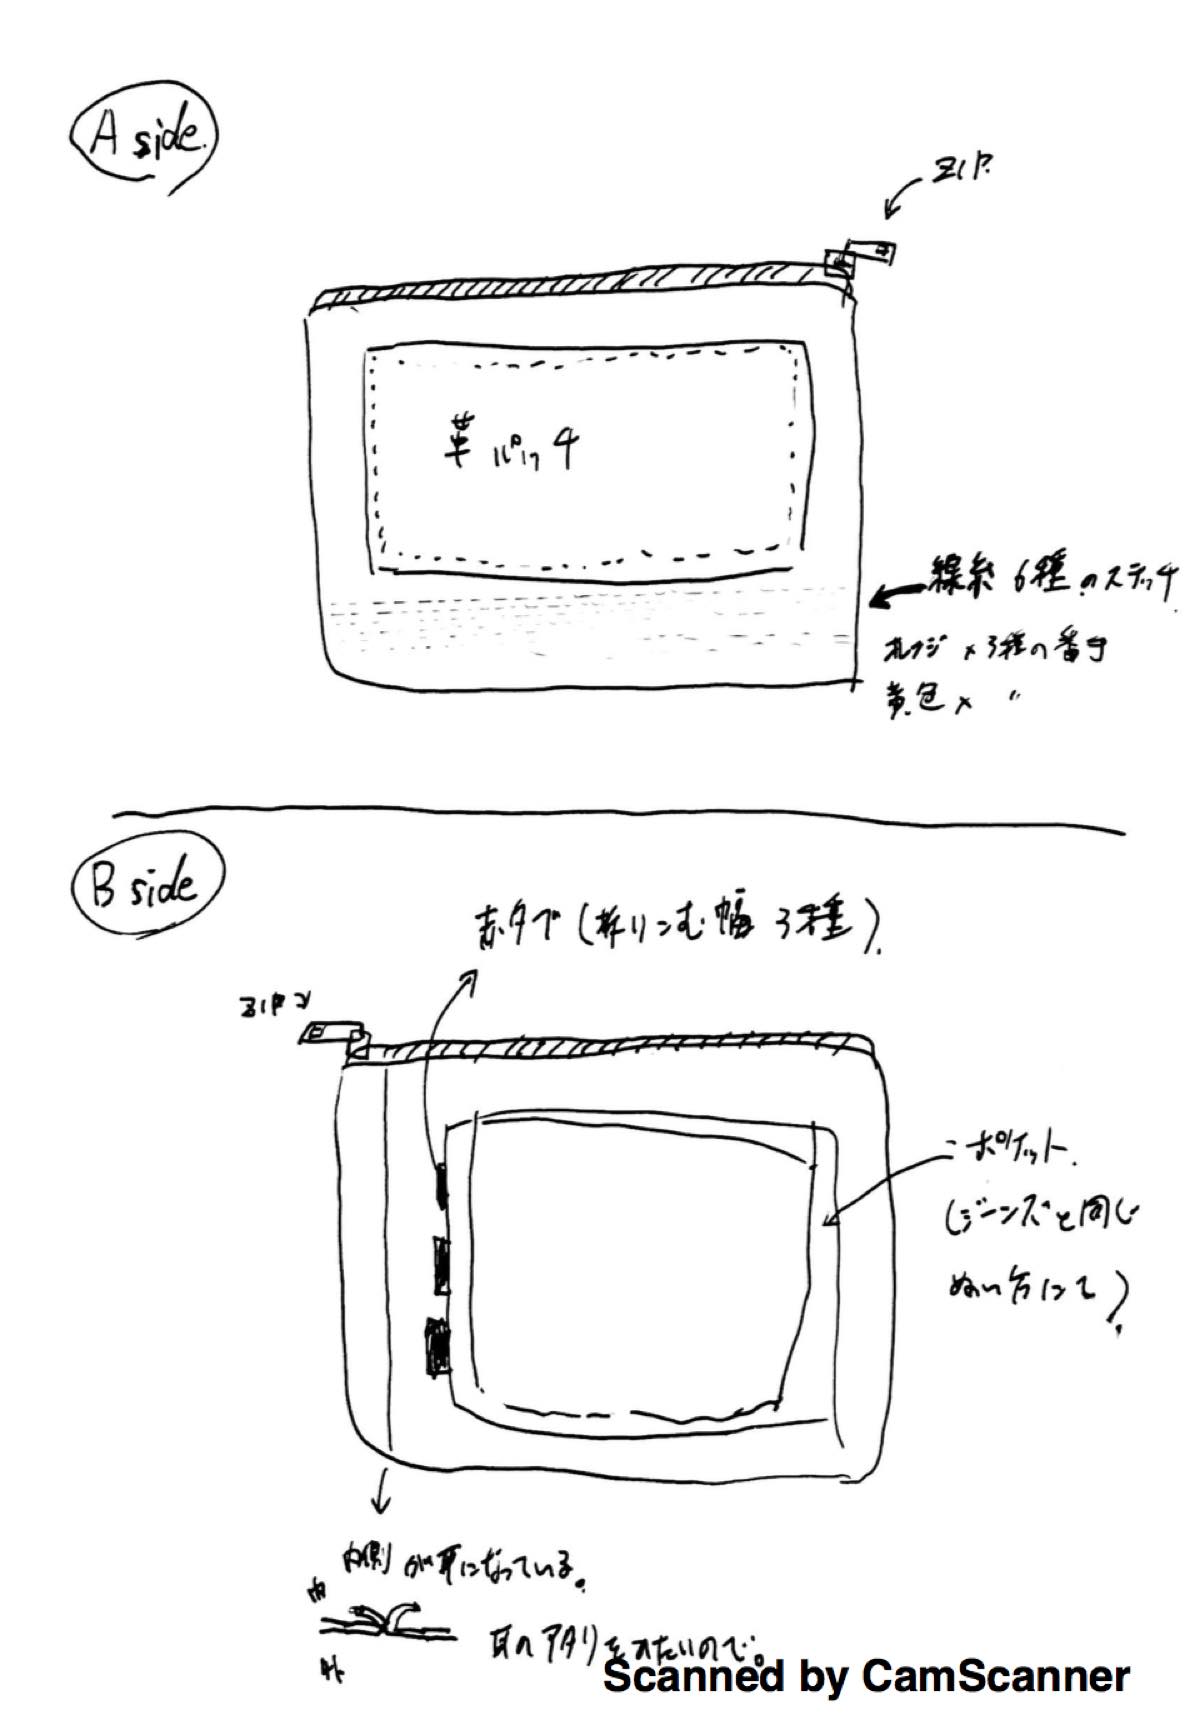 A side.
ZIP.
革パッチ
線糸 6種のステッチ
オレンジ × 3種の番手
黄色 × 〃
B side
赤タブ(折りこむ幅 3種).
ZIP
ポケット.
(ジーンズと同じ
ぬい方にて).
内側が耳になっている。
内
耳のアタリをみたいので。
外
Scanned by CamScanner